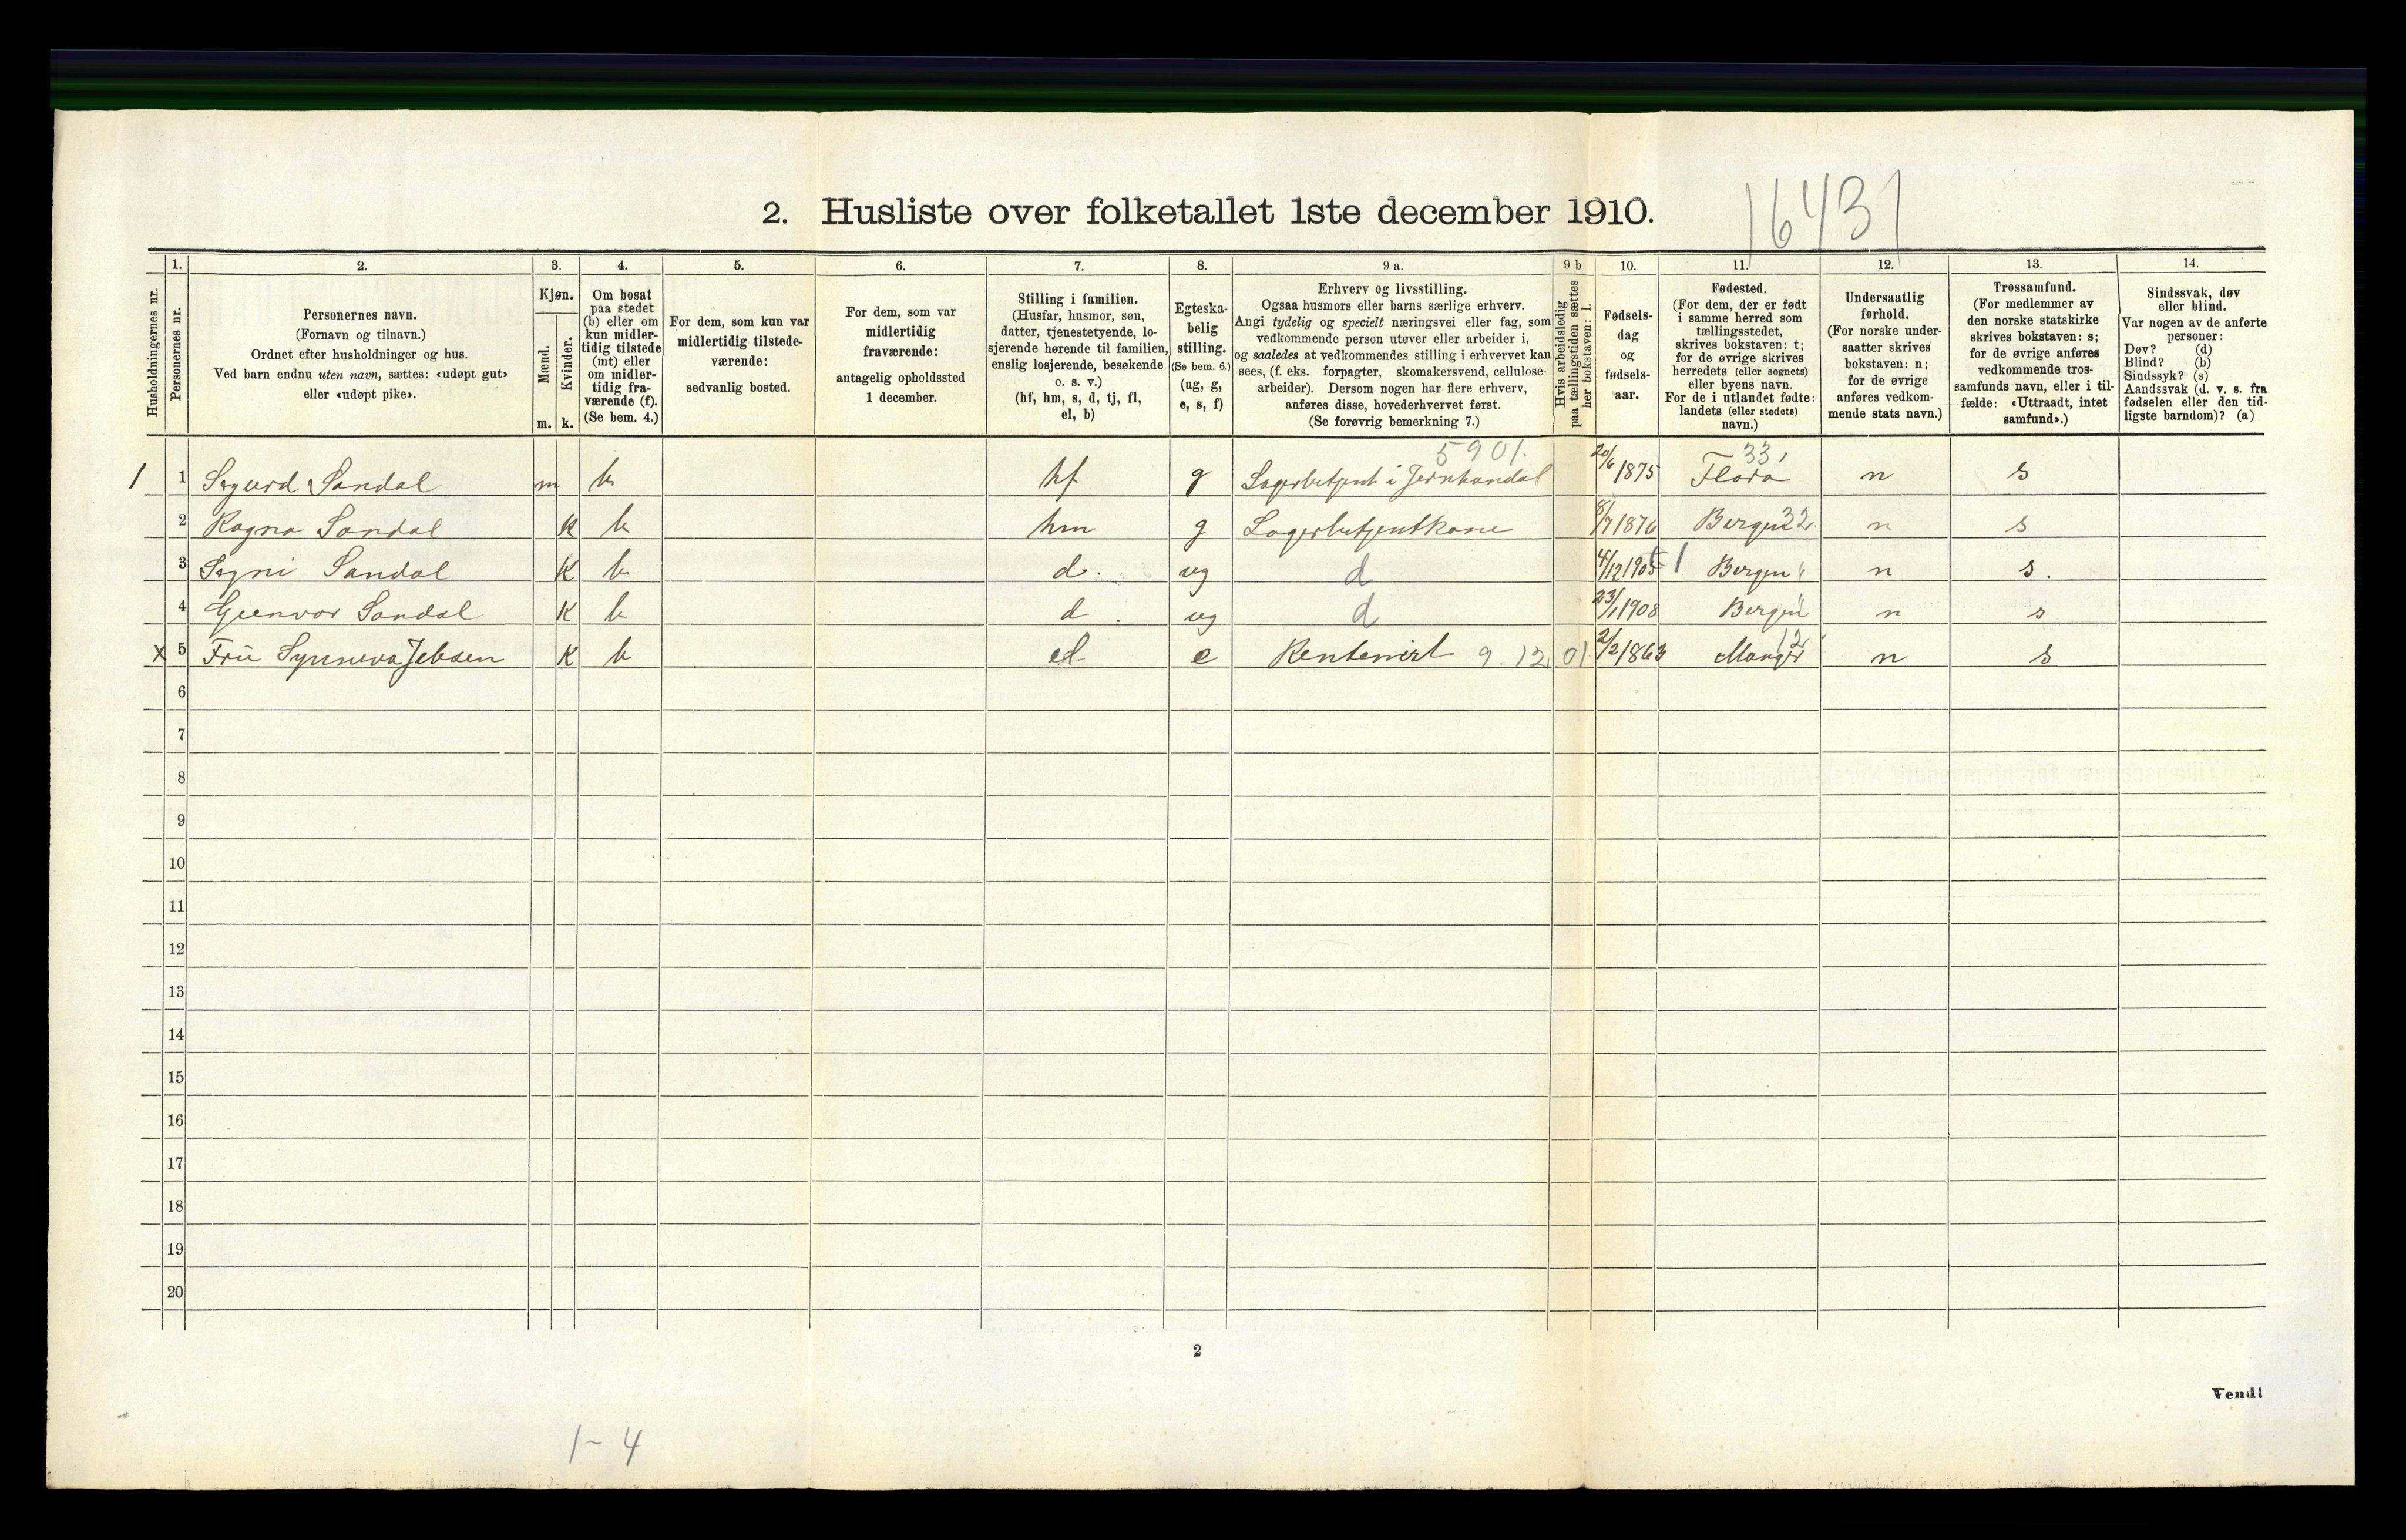 16431
2. Husliste over folketallet 1ste december 1910.
Husholdningernes nr.
1. Personernes nr.
2. Personernes navn. (Fornavn og tilnavn.) Ordnet efter husholdninger og hus. Ved barn endnu uten navn, sættes: «udøpt gut» eller «udøpt pike».
3. Kjøn. Mænd. m. Kvinder. k.
4. Om bosat paa stedet (b) eller om kun midler-tidig tilstede (mt) eller om midler-tidig fra-værende (f). (Se bem. 4.)
5. For dem, som kun var midlertidig tilstede-værende: sedvanlig bosted.
6. For dem, som var midlertidig fraværende: antagelig opholdssted 1 december.
7. Stilling i familien. (Husfar, husmor, søn, datter, tjenestetyende, lo-sjerende hørende til familien, enslig losjerende, besøkende o. s. v.) (hf, hm, s, d, tj, fl, el, b)
8. Egteska-belig stilling. (Se bem. 6.) (ug, g, e, s, f)
9 a. Erhverv og livsstilling. Ogsaa husmors eller barns særlige erhverv. Angi tydelig og specielt næringsvei eller fag, som vedkommende person utøver eller arbeider i, og saaledes at vedkommendes stilling i erhvervet kan sees, (f. eks. forpagter, skomakersvend, cellulose-arbeider). Dersom nogen har flere erhverv, anføres disse, hovederhvervet først. (Se forøvrig bemerkning 7.)
9 b Hvis arbeidsledig paa tællingstiden sættes her bokstaven: l.
10. Fødsels-dag og fødsels-aar.
11. Fødested. (For dem, der er født i samme herred som tællingsstedet, skrives bokstaven: t; for de øvrige skrives herredets (eller sognets) eller byens navn. For de i utlandet fødte: landets (eller stedets) navn.)
12. Undersaatlig forhold. (For norske under-saatter skrives bokstaven: n; for de øvrige anføres vedkom-mende stats navn.)
13. Trossamfund. (For medlemmer av den norske statskirke skrives bokstaven: s; for de øvrige anføres vedkommende tros-samfunds navn, eller i til-fælde: «Uttraadt, intet samfund».)
14. Sindssvak, døv eller blind. Var nogen av de anførte personer: Døv? (d) Blind? (b) Sindssyk? (s) Aandssvak (d. v. s. fra fødselen eller den tid-ligste barndom)? (a)
5901. 33,
1 1 Sigurd Sandal m b hf g Lagerbetjent i Jernhandel 20/6 1875 Flora n s
2 Ragna Sandal k b hm g Lagerbetjentkone 8/7 1876 Bergen 32 n s
3 Signi Sandal k b d. ug d 4/12 1905 1 Bergen " n s.
4 Gunvor Sandal k b d. ug d 23/1 1908 Bergen " n s
x 5 Fru Synneva Jebsen k b el e Rentenist 9.12 01 2/2 1863 Manger 12 n s
6
7
8
9
10
11
12
13
14
15
16
17
18
19
20
2
Vend!
1-4